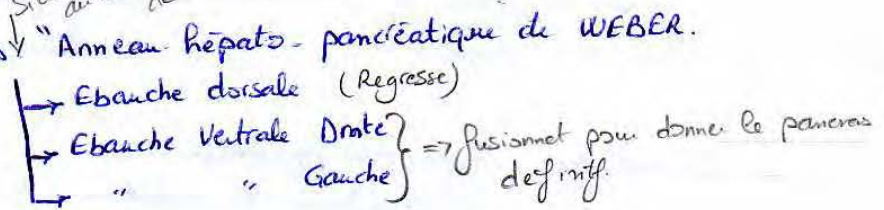 "Anneau hépato-pancréatique de WEBER.
→ Ebauche dorsale (Regresse)
→ Ebauche Ventrale Droite } => fusionnet pour donner le pancreas
→ " " Gauche } definitf.